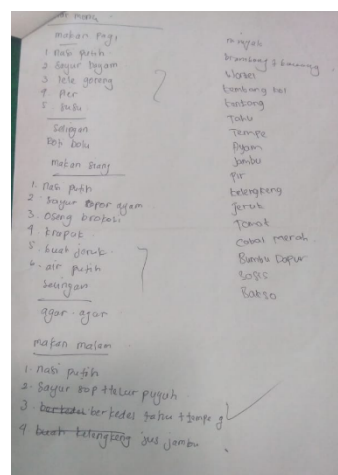 makan pagi
1 nasi putih
2 Sayur bayam
3 lele goreng
4 Pier
5 susu
Selingan
Roti bolu
makan siang
1. nasi putih
2. Sayur opor ayam
3. Oseng brokoli
4. krapuk
5. buah jeruk
6. air putih
Selingan
agar-agar
makan malam
1. nasi putih
2. Sayur sop + telur puyuh
3. berkedes berkedes tahu + tempe g
4 buah kelengkeng jus jambu
minyak
wortel
kembang kol
kentang
Tahu
Tempe
Ayam
Jambu
pir
kelengkeng
Jeruk
Tomat
Cabai merah
Bumbu Dapur
Sosis
Bakso